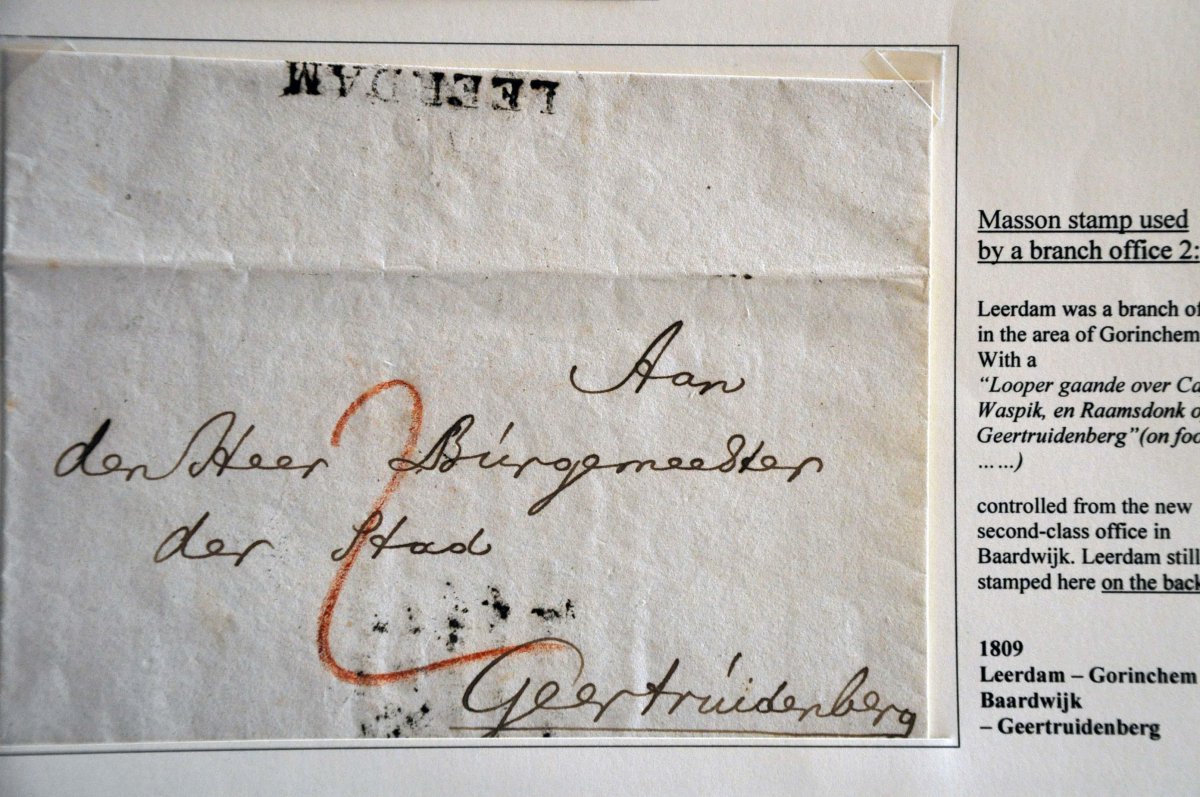 LEERDAM
Aan
den Heer Burgemeester
der Stad
Geertruidenberg
2
Masson stamp used
by a branch office 2:
Leerdam was a branch of
in the area of Gorinchem
With a
“Looper gaande over Ca
Waspik, en Raamsdonk o
Geertruidenberg”(on foo
… …)
controlled from the new
second-class office in
Baardwijk. Leerdam still
stamped here on the back
1809
Leerdam – Gorinchem
Baardwijk
– Geertruidenberg